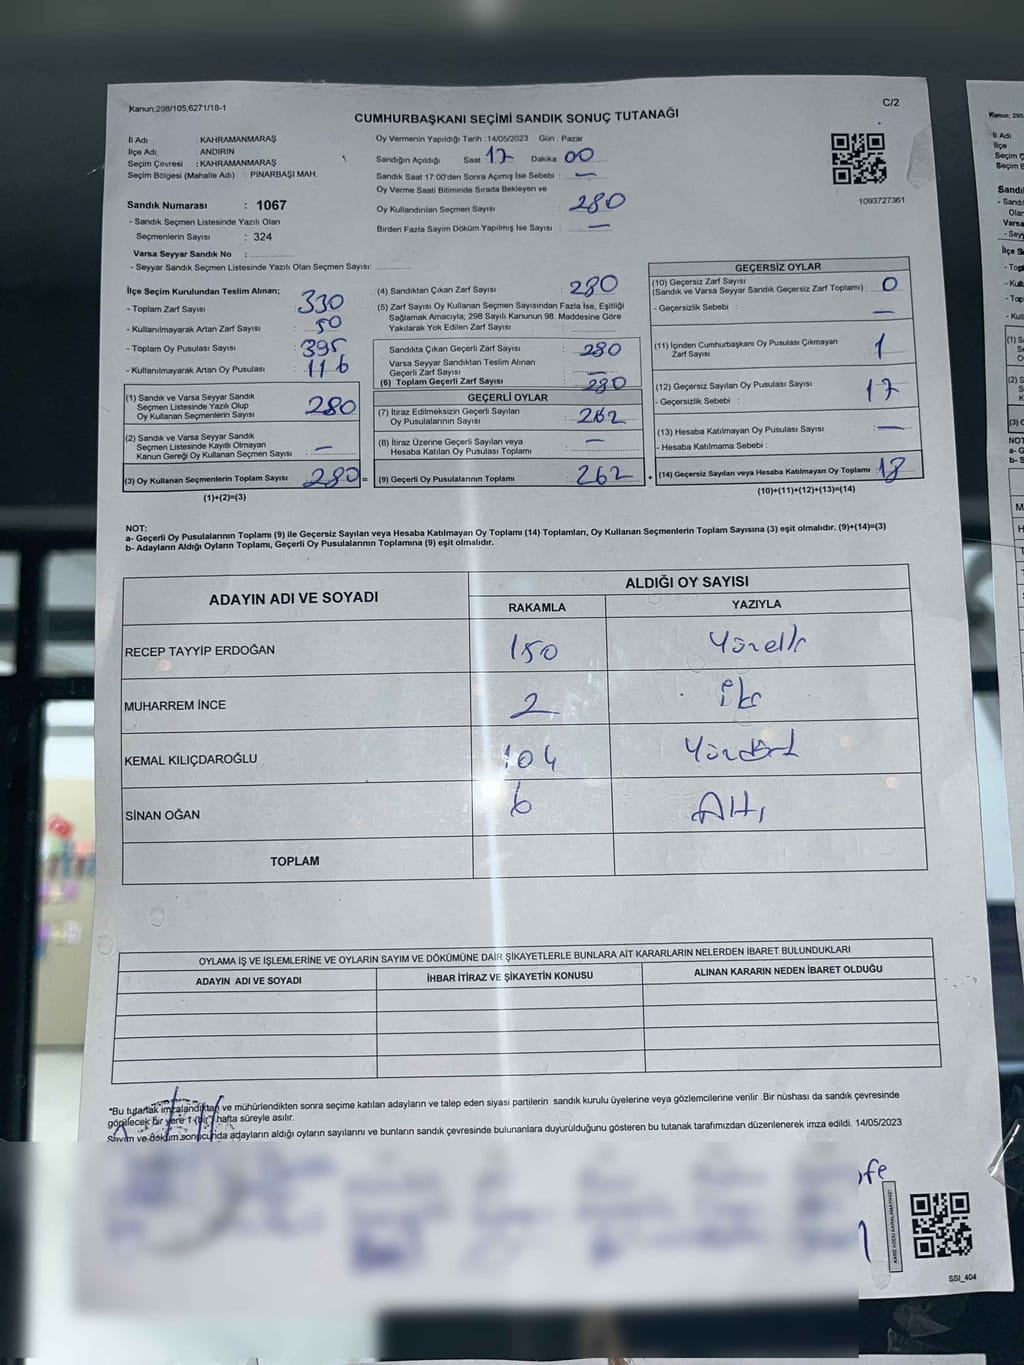 Kanun;298/105,6271/18-1
C/2
CUMHURBAŞKANI SEÇİMİ SANDIK SONUÇ TUTANAĞI
İl Adı : KAHRAMANMARAŞ
İlçe Adı : ANDIRIN
Seçim Çevresi : KAHRAMANMARAŞ
Seçim Bölgesi (Mahalle Adı) : PINARBAŞI MAH.
Sandık Numarası : 1067
- Sandık Seçmen Listesinde Yazılı Olan
Seçmenlerin Sayısı : 324
Varsa Seyyar Sandık No :
- Seyyar Sandık Seçmen Listesinde Yazılı Olan Seçmen Sayısı:
Oy Vermenin Yapıldığı Tarih : 14/05/2023 Gün : Pazar
Sandığın Açıldığı Saat 17 Dakika 00
Sandık Saat 17:00'den Sonra Açımış İse Sebebi : —
Oy Verme Saati Bitiminde Sırada Bekleyen ve
Oy Kullandırılan Seçmen Sayısı : 280
Birden Fazla Sayım Döküm Yapılmış İse Sayısı : —
1093727361
İlçe Seçim Kurulundan Teslim Alınan;
- Toplam Zarf Sayısı : 330
- Kullanılmayarak Artan Zarf Sayısı : 50
- Toplam Oy Pusulası Sayısı : 395
- Kullanılmayarak Artan Oy Pusulası : 116
(1) Sandık ve Varsa Seyyar Sandık
Seçmen Listesinde Yazılı Olup
Oy Kullanan Seçmenlerin Sayısı : 280
(2) Sandık ve Varsa Seyyar Sandık
Seçmen Listesinde Kayıtlı Olmayan
Kanun Gereği Oy Kullanan Seçmen Sayısı : —
(3) Oy Kullanan Seçmenlerin Toplam Sayısı : 280 =
(1)+(2)=(3)
(4) Sandıktan Çıkan Zarf Sayısı : 280
(5) Zarf Sayısı Oy Kullanan Seçmen Sayısından Fazla İse, Eşitliği
Sağlamak Amacıyla; 298 Sayılı Kanunun 98. Maddesine Göre
Yakılarak Yok Edilen Zarf Sayısı :
Sandıkta Çıkan Geçerli Zarf Sayısı : 280
Varsa Seyyar Sandıktan Teslim Alınan
Geçerli Zarf Sayısı : —
(6) Toplam Geçerli Zarf Sayısı : 280
GEÇERLİ OYLAR
(7) İtiraz Edilmeksizin Geçerli Sayılan
Oy Pusulalarının Sayısı : 262
(8) İtiraz Üzerine Geçerli Sayılan veya
Hesaba Katılan Oy Pusulası Toplamı : —
(9) Geçerli Oy Pusulalarının Toplamı : 262 +
GEÇERSİZ OYLAR
(10) Geçersiz Zarf Sayısı
(Sandık ve Varsa Seyyar Sandık Geçersiz Zarf Toplamı) : 0
- Geçersizlik Sebebi : —
(11) İçinden Cumhurbaşkanı Oy Pusulası Çıkmayan
Zarf Sayısı : 1
(12) Geçersiz Sayılan Oy Pusulası Sayısı : 17
- Geçersizlik Sebebi :
(13) Hesaba Katılmayan Oy Pusulası Sayısı : —
- Hesaba Katılmama Sebebi :
(14) Geçersiz Sayılan veya Hesaba Katılmayan Oy Toplamı : 18
(10)+(11)+(12)+(13)=(14)
NOT:
a- Geçerli Oy Pusulalarının Toplamı (9) ile Geçersiz Sayılan veya Hesaba Katılmayan Oy Toplamı (14) Toplamları, Oy Kullanan Seçmenlerin Toplam Sayısına (3) eşit olmalıdır. (9)+(14)=(3)
b- Adayların Aldığı Oyların Toplamı, Geçerli Oy Pusulalarının Toplamına (9) eşit olmalıdır.
ADAYIN ADI VE SOYADI
ALDIĞI OY SAYISI
RAKAMLA YAZIYLA
RECEP TAYYİP ERDOĞAN 150 Yüzelli
MUHARREM İNCE 2 iki
KEMAL KILIÇDAROĞLU 104 Yüzdört
SİNAN OĞAN 6 Altı
TOPLAM
OYLAMA İŞ VE İŞLEMLERİNE VE OYLARIN SAYIM VE DÖKÜMÜNE DAİR ŞİKAYETLERLE BUNLARA AİT KARARLARIN NELERDEN İBARET BULUNDUKLARI
ADAYIN ADI VE SOYADI İHBAR İTİRAZ VE ŞİKAYETİN KONUSU ALINAN KARARIN NEDEN İBARET OLDUĞU
*Bu tutanak imzalandıktan ve mühürlendikten sonra seçime katılan adayların ve talep eden siyasi partilerin sandık kurulu üyelerine veya gözlemcilerine verilir .Bir nüshası da sandık çevresinde
görülecek bir yere 1 (bir) hafta süreyle asılır.
Sayım ve döküm sonucunda adayların aldığı oyların sayılarını ve bunların sandık çevresinde bulunanlara duyurulduğunu gösteren bu tutanak tarafımızdan düzenlenerek imza edildi. 14/05/2023
SSI_404